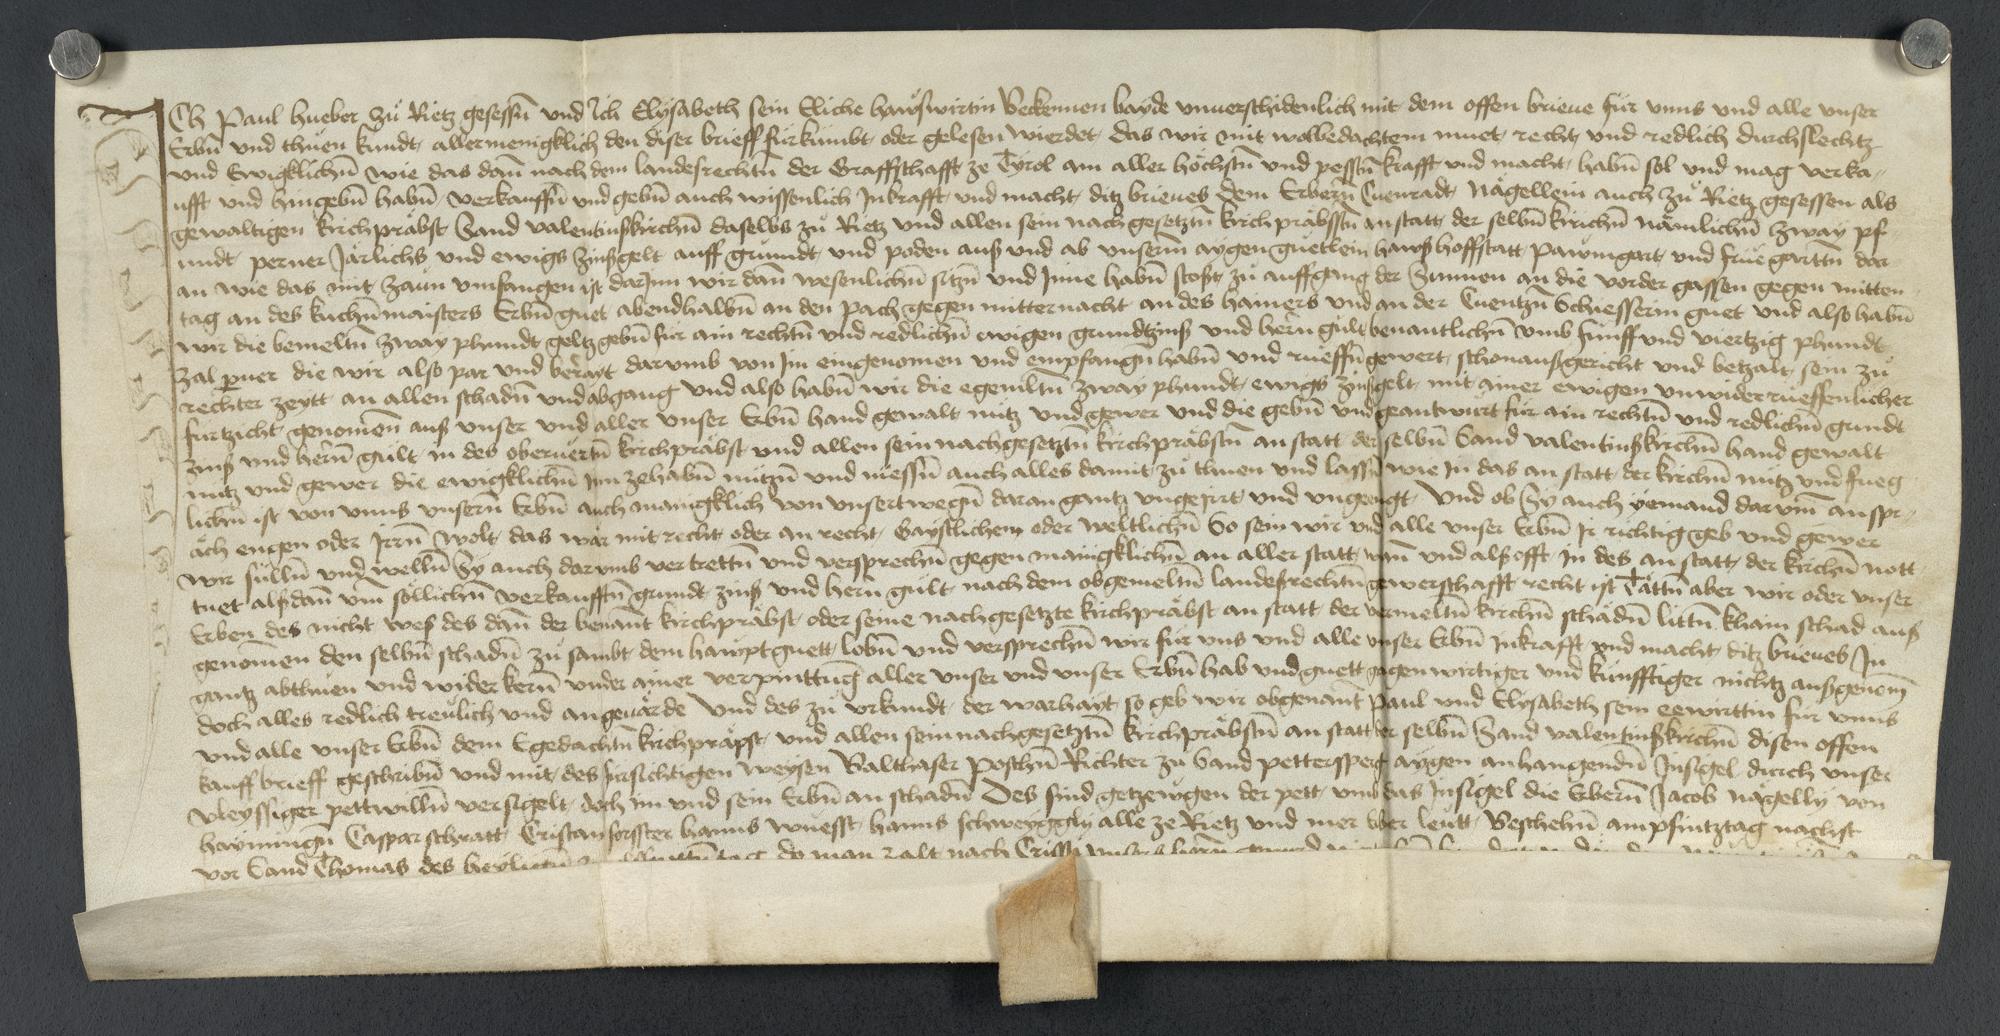 ICh Paul Hueber zů Rietz gesessn̄ und Ich Elysabeth sein Eliche hawswirtin Bekennen bayde unverschidenlich mit dem offen brieve für unns und alle unser
Erbn̄ und thuen kundt allermenigklich den diser brieff fürkumbt oder gelesen wierdet das wir mit wolbedachtem muet recht und redlich durchslechtz
und Ewigklichn̄ wie das dan̄ nach dem landesrechtn̄ der Graffschafft ze Tyrol am aller höchstn̄ und pesstn̄ krafft und macht habn̄ sol und mag verka-
ufft und hingebn̄ habn̄ verkauffn̄ und gebn̄ auch wissenlich In krafft und macht ditz brieves dem Erbern̄ Cuenradt Nägellein auch zů Rietz gesessen als
gewaltigen kirchpräbst Sand valentinskirchn̄ daselbs zů Rietz und allen sein nachgesetztn̄ kirchpräbstn̄ anstatt der selbn̄ kirchn̄ nämlichn̄ zway pf-
undt perner Järlichs und ewigs zinsgelt auff grundt und poden aus und ab unserm aygen guetlein haws hoffstatt pawmgart und frue garttn̄ dar
an wie das mit zawn umfangen ist darInn wir dan̄ wesenlichn̄ sitzn̄ und Inne habn̄ stosst zů auffgang der Sunnen an die vorder gassen gegen mitten
tag an des kuchn̄maisters Erbn̄ guet abendhalbn̄ an den pach gegen mitternacht an des hainers und an der Cuentzn̄ Schiesserin guet und also habn̄
wir die bemeltn̄ zway phundt geltz gebn̄ für ain rechtn̄ und redlichn̄ ewigen grundtzins und hern̄ gült benantlichn̄ umb funff und viertzig phundt
zal perner die wir also par und berayt darumb von Im eingenomen und empfangn̄ habn̄ und rueffn̄ gewert schon ausgericht und betzalt sein zů
rechter zeytt an allen schadn̄ und abgang und also habn̄ wir die egemltn̄ zway phundt ewigs zinsgelt mit ainer ewigen unwiderrueffenlicher
furtzicht genomen̄ aus unser und aller unser Erbn̄ hand gewalt nutz und gewer und die gebn̄ und geantwurt für ain rechtn̄ und redlichn̄ grundt
zins und hern̄ gült in des oberüertn̄ kirchpräbst und allen sein nachgesetztn̄ kirchpräbstn̄ an statt der selbn̄ Sand valentinskirchn̄ hand gewalt
nutz und gewer die ewigklichn̄ Inn zehabn̄ nutzn̄ und niessn̄ auch alles damit zů thuen und lassn̄ wie in das an statt der kirchn̄ nutz und fueg-
lichn̄ ist von unns unsern̄ Erbn̄ auch manigklich von unsertwegn̄ daran gantz ungeirrt und ungeengt Und ob Sy auch yemand darum̄ anspr-
äch engen oder Irrn̄ wolt das wär mit recht oder an recht Gaystlichem oder weltlichn̄ So sein wir und alle unser Erbn̄ Ir richtig geb und gewer
wir sullun̄ und wellun̄ Sy auch darumb vertrettn̄ und versprechn̄ gegen manigklichn̄ an aller statt wan̄ und als offt in des an statt der kirchn̄ nott
tuet als dan̄ um̄ söllichn̄ verkaufftn̄ grundt zins und hern̄ gült nach dem obgemeltn̄ landesrechtn̄ gewerschafft recht ist Tättn̄ aber wir oder unser
Erben des nicht wes des dan̄ der benant̄ kirchpräbst oder seine nachgesetzte kirchpräbst an statt der vermeltn̄ kirchn̄ schadn̄ littn̄ khain schad aus
genom̄en den selbn̄ schadn̄ zů sambt dem hawptguett lobn̄ und versprechn̄ wir für uns und alle unser Erbn̄ In krafft und macht ditz brieves In
gantz abthuen und widerkern̄ under ainer verpinttung aller unser und unser Erbn̄ hab und guett gagenwirtiger und künfftiger nichtz ausgenom̄
doch alles redlich treulich und angevärde Und des zů urkundt der warhayt so geb wir obgenant̄ Paul und Elysabeth sein eewirttin für unns
und alle unser Erbn̄ dem Egedachtn̄ kirchpräpst und allen sein nachgesetztn̄ kirchpräbstn̄ an statt der selbn̄ Sand valentinskirchn̄ disen offen
kauff brieff geschribn̄ und mit des fürsichtigen weysen Balthaser Poschn̄ Richter zu Sand pettersperg aygen anhangendn̄ Insigel durch unser
vleyssiger pettwillun̄ versigelt doch im und sein Erbn̄ an schadn̄ Des sind getzewgen der pett umb das Insigel die Erbern̄ Jacob Nägelly von
haymingn̄ Caspar schratt Cristan forster hanns wuesst hanns schweyggly alle ze Rietz und mer Eber leutt Beschehn̄ am pfintztag nachst
vor Sand Thomas des heylign̄ tag do man zalt nach Cristi unsers hern̄